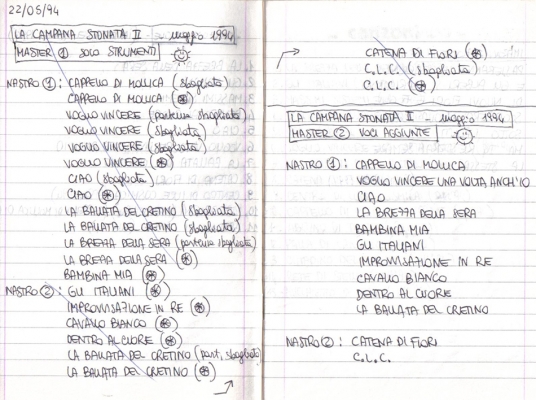 22/05/94
LA CAMPANA STONATA II - maggio 1994
MASTER 1 SOLO STRUMENTI
NASTRO 1: CAPPELLO DI MOLLICA (sbagliata)
CAPPELLO DI MOLLICA (*)
VOGLIO VINCERE (partenza sbagliata)
VOGLIO VINCERE (sbagliata)
VOGLIO VINCERE (sbagliata)
VOGLIO VINCERE (*)
CIAO (sbagliata)
CIAO (*)
LA BALLATA DEL CRETINO (sbagliata)
LA BALLATA DEL CRETINO (sbagliata)
LA BREZZA DELLA SERA (partenza sbagliata)
LA BREZZA DELLA SERA (*)
BAMBINA MIA (*)
NASTRO 2: GLI ITALIANI (*)
IMPROVVISAZIONE IN RE (*)
CAVALLO BIANCO (*)
DENTRO AL CUORE (*)
LA BALLATA DEL CRETINO (part. sbagliata)
LA BALLATA DEL CRETINO (*)
CATENA DI FIORI (*)
C.L.C. (sbagliata)
C.L.C. (*)
LA CAMPANA STONATA II - maggio 1994
MASTER 2 VOCI AGGIUNTE
NASTRO 1: CAPPELLO DI MOLLICA
VOGLIO VINCERE UNA VOLTA ANCH'IO
CIAO
LA BREZZA DELLA SERA
BAMBINA MIA
GLI ITALIANI
IMPROVVISAZIONE IN RE
CAVALLO BIANCO
DENTRO AL CUORE
LA BALLATA DEL CRETINO
NASTRO 2: CATENA DI FIORI
C.L.C.